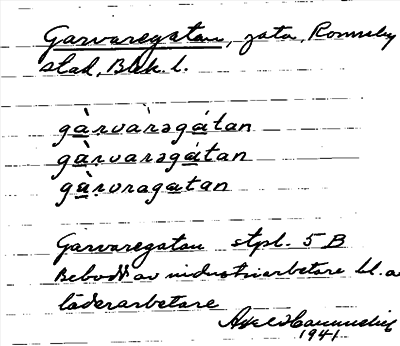 Garvaregatan, gata, Ronneby
stad, Blek. l.
gàrvàrəgátan
gàrvarəgátan
gàrvragatan
Garvaregatan stpl. 5 B
Bebodd av industriarbetare bl. a
läderarbetare
Axel
1941